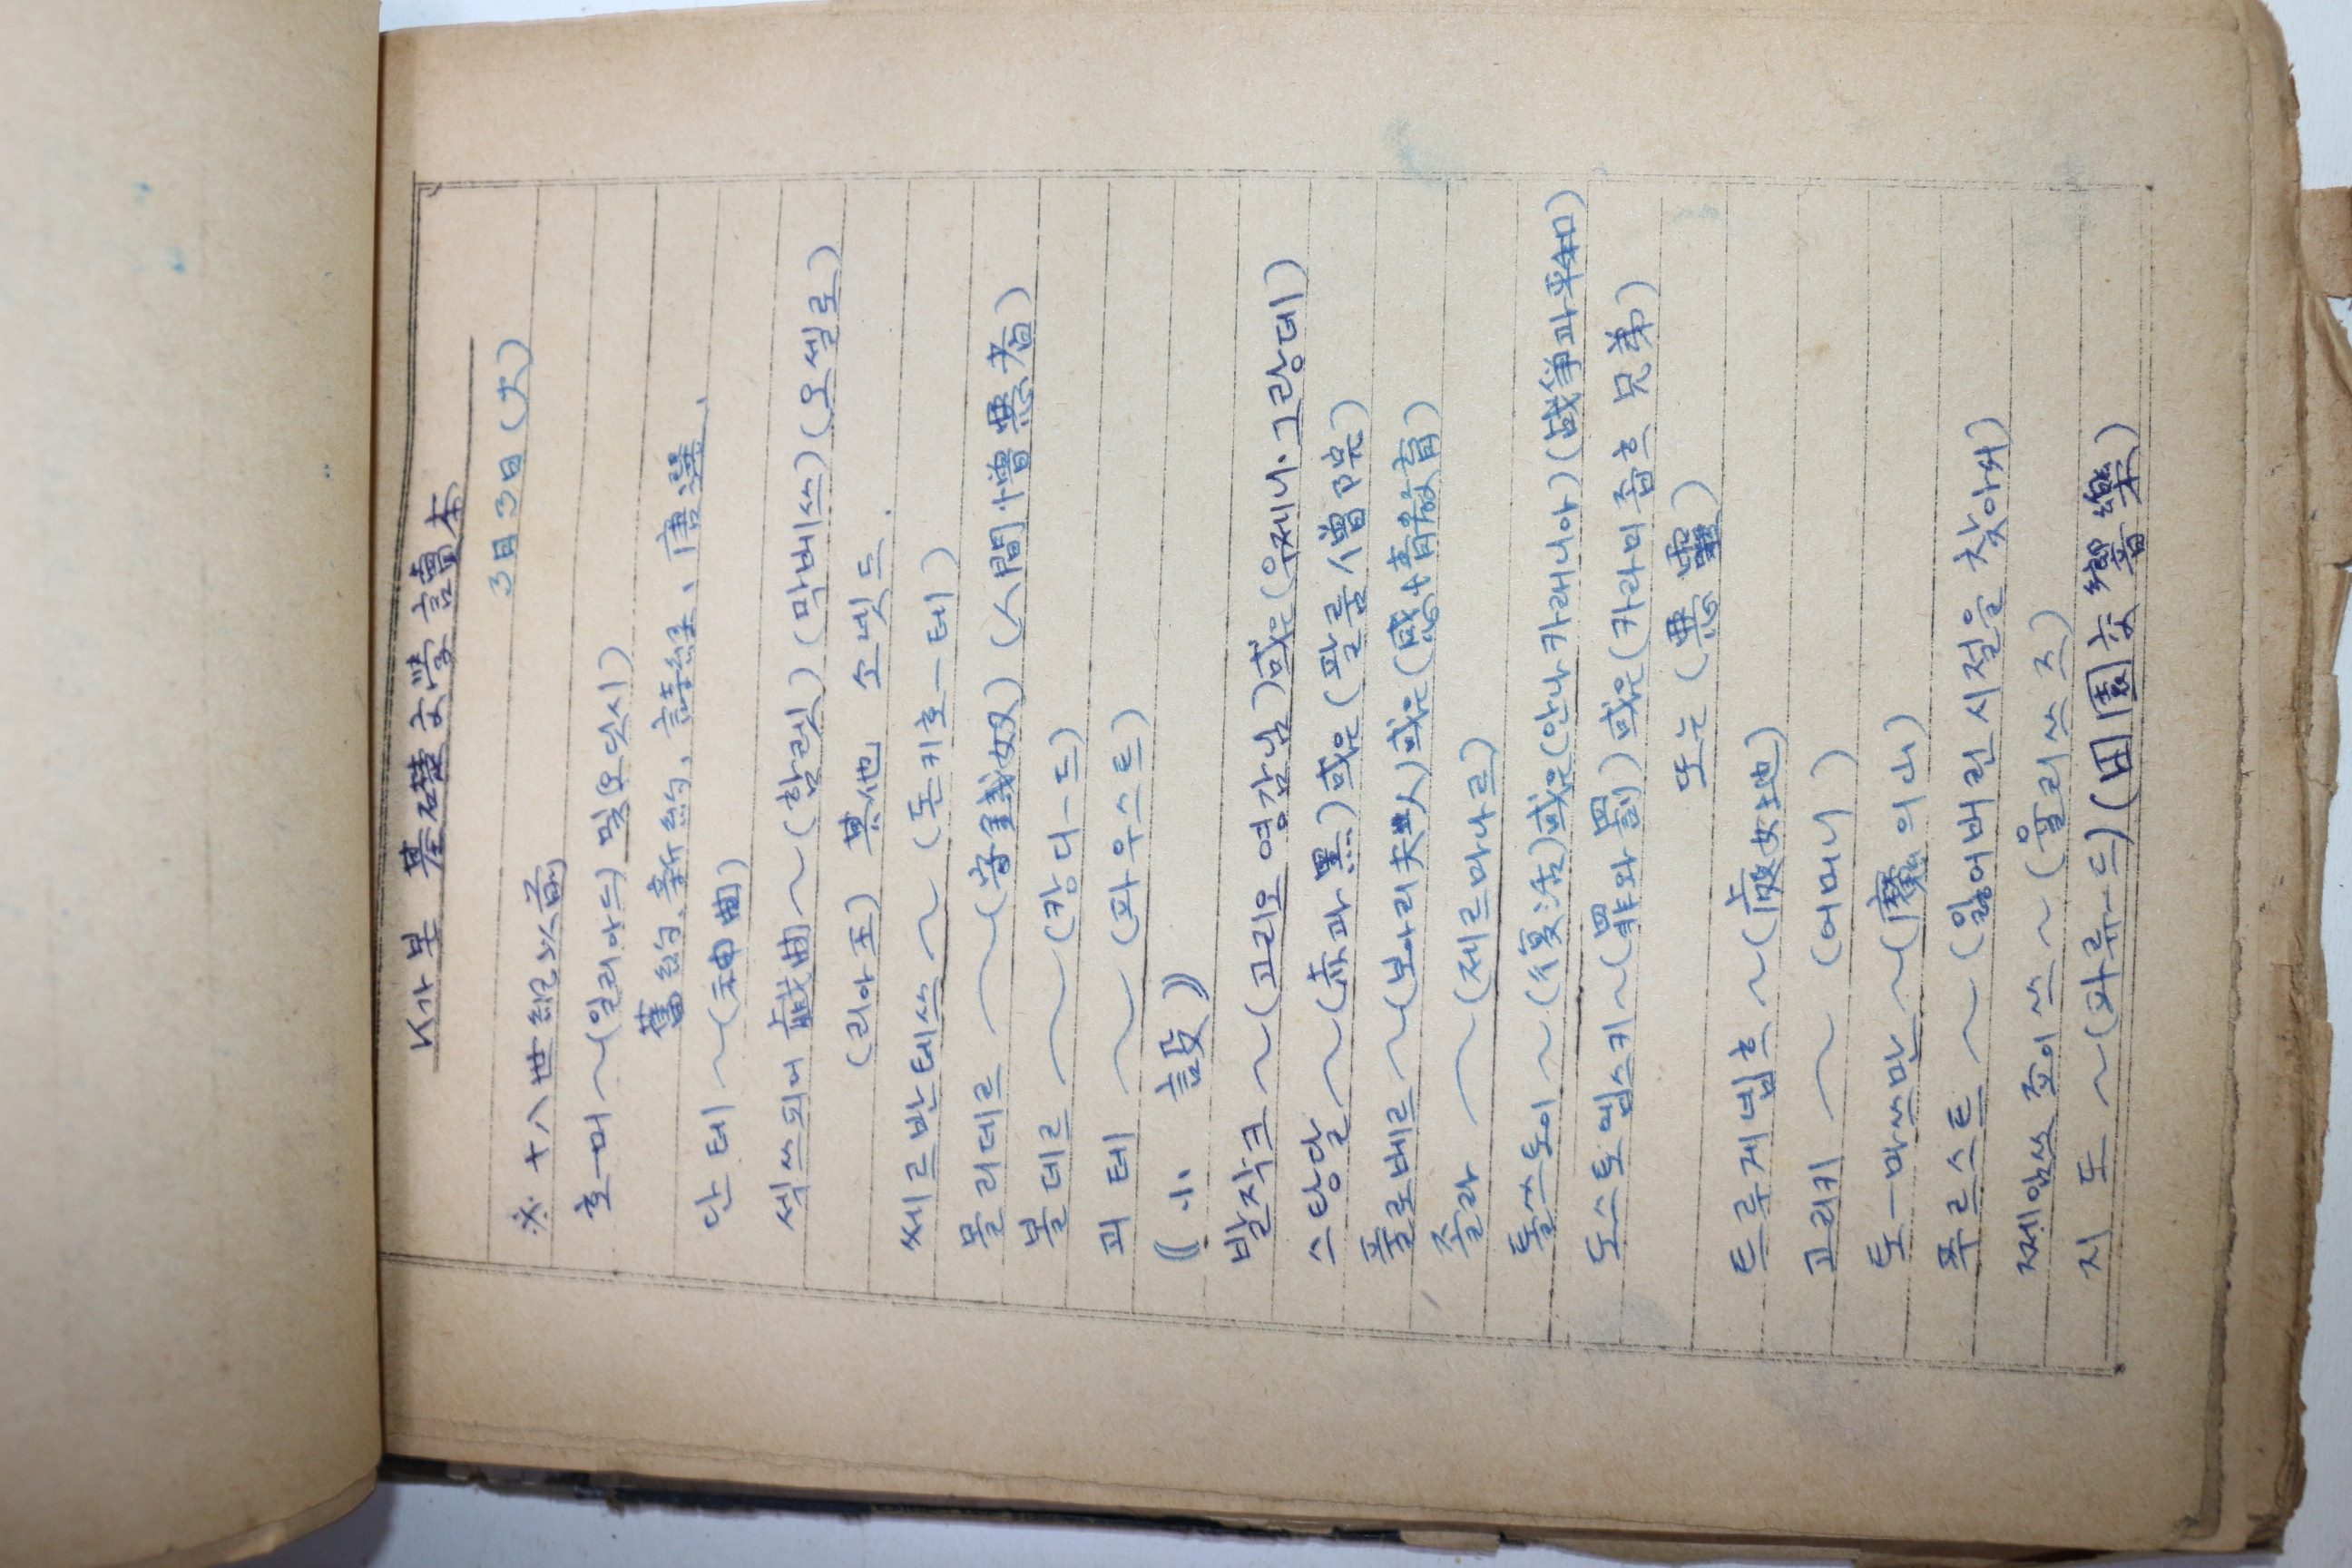 K가 본 基礎文學讀本
3月3日 (火)
※ 十八世紀以前
호ー머 ~(일리아드) 및(오딧시)
舊約, 新約, 詩経, 唐選,
단테 ~(神曲)
섹쓰피어 戱曲~(함렛) (막베쓰) (오셀로)
(리아王) 其他 소넷드.
쎄르반테쓰 ~ (돈키호ー테)
몰리에르 ~(守錢奴) (人間憎惡者)
볼테르 ~(캉디ー드)
괴테 ~ (파우스트)
《小 設》
발작크 ~(고리오 영감님)或은(우제니·그랑데)
스탕달 ~(赤과 黑)或은(팔룸僧院)
플로베르 ~(보아리夫人)或은(感情敎育)
졸라 ~(제르미나르)
톨쓰토이 ~(復活)或은(안나 카래니아)(战爭과 平和)
도스토엡스키~(罪와 罰)或은(카라미좁흐 兄弟)
또는 (惡靈)
트루게넵흐 ~(處女地)
고리키 ~ (어머니)
토ー마쓰만 ~(魔의 山)
푸르스트 ~ (잃어버린 시절을 찾아서)
쩨임쓰 죠이쓰 ~ (율리쓰즈)
지드 ~(파류ー드)(田園交響樂)